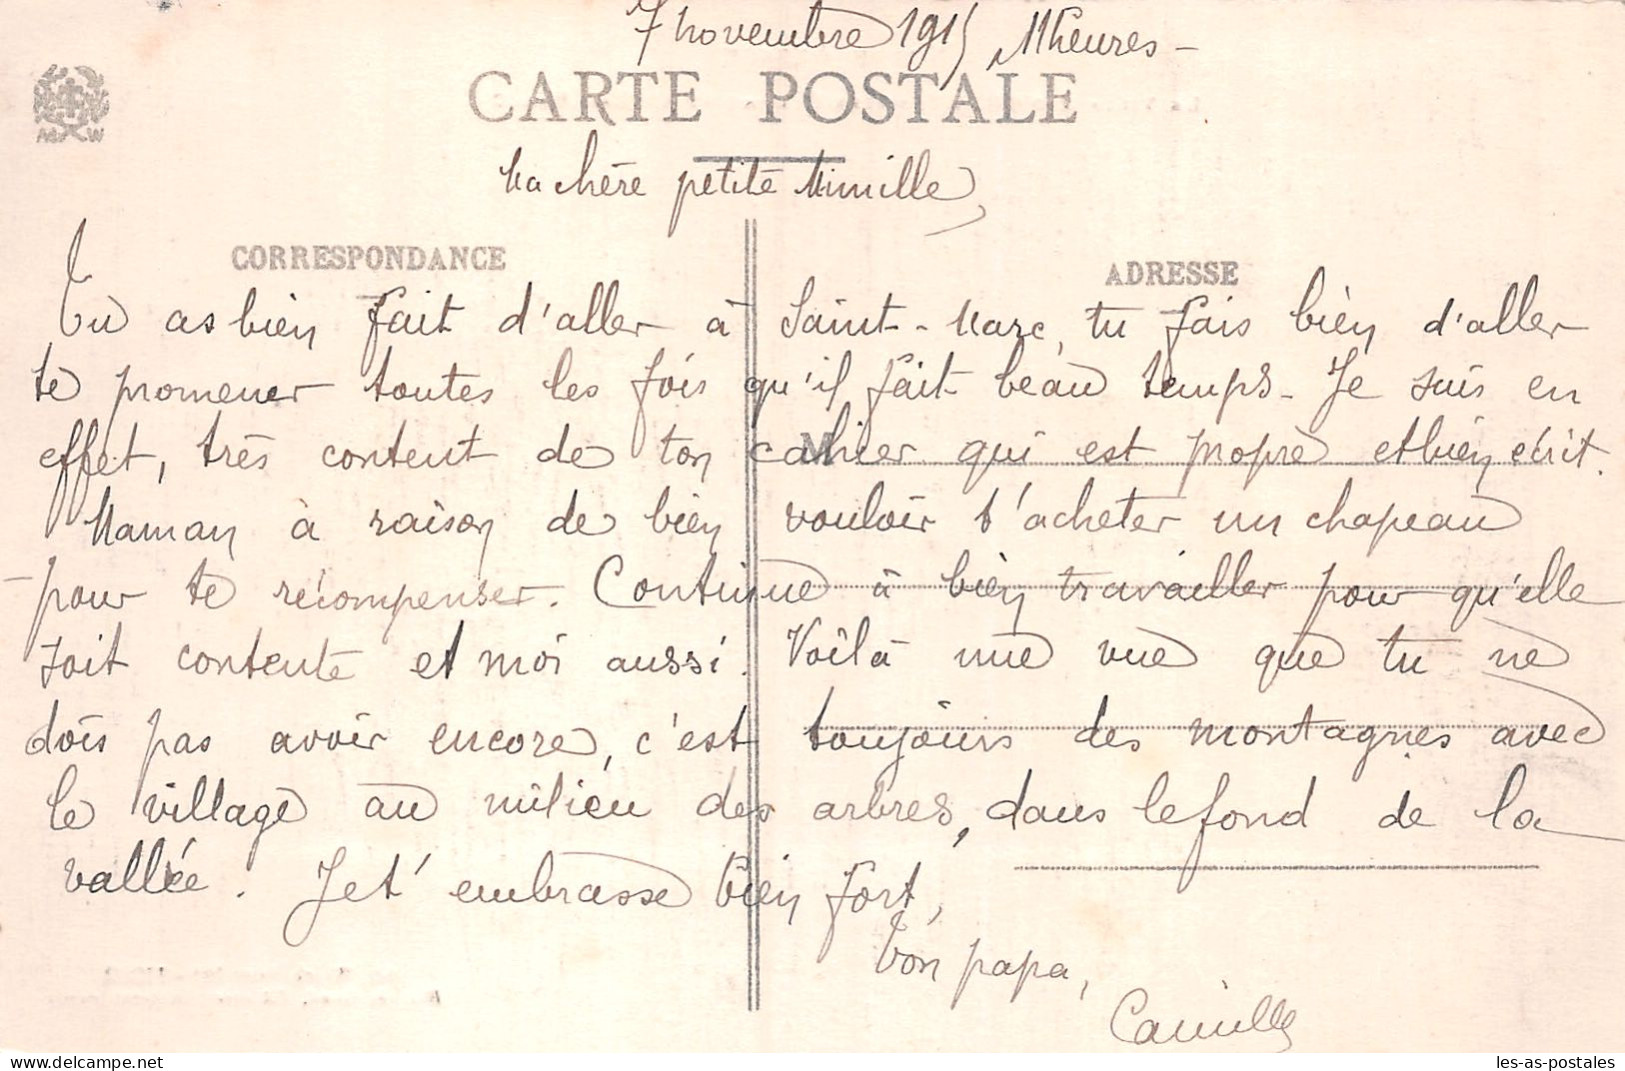 7 novembre 1915 11 heures -
CARTE POSTALE
Ma chère petite Mimille,
CORRESPONDANCE
ADRESSE
Tu as bien fait d'aller à Saint-Marc, tu fais bien d'aller
te promener toutes les fois qu'il fait beau temps - Je suis en
effet, très content de ton cahier qui est propre et bien écrit.
M
Maman à raison de bien vouloir t'acheter un chapeau
pour te récompenser. Continue à bien travailler pour qu'elle
soit contente et moi aussi. Voilà une vue que tu ne
dois pas avoir encore, c'est toujours des montagnes avec
le village au milieu des arbres, dans le fond de la
vallée. Je t'embrasse bien fort,
Ton papa,
Camille
les-as-postales